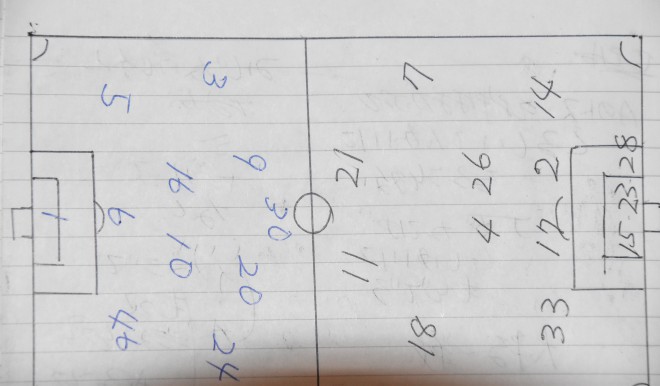 30
9 20
3 24
16 10
5 6 46
1
11 21
18 7
4 26
33 17 2 14
15 23 28